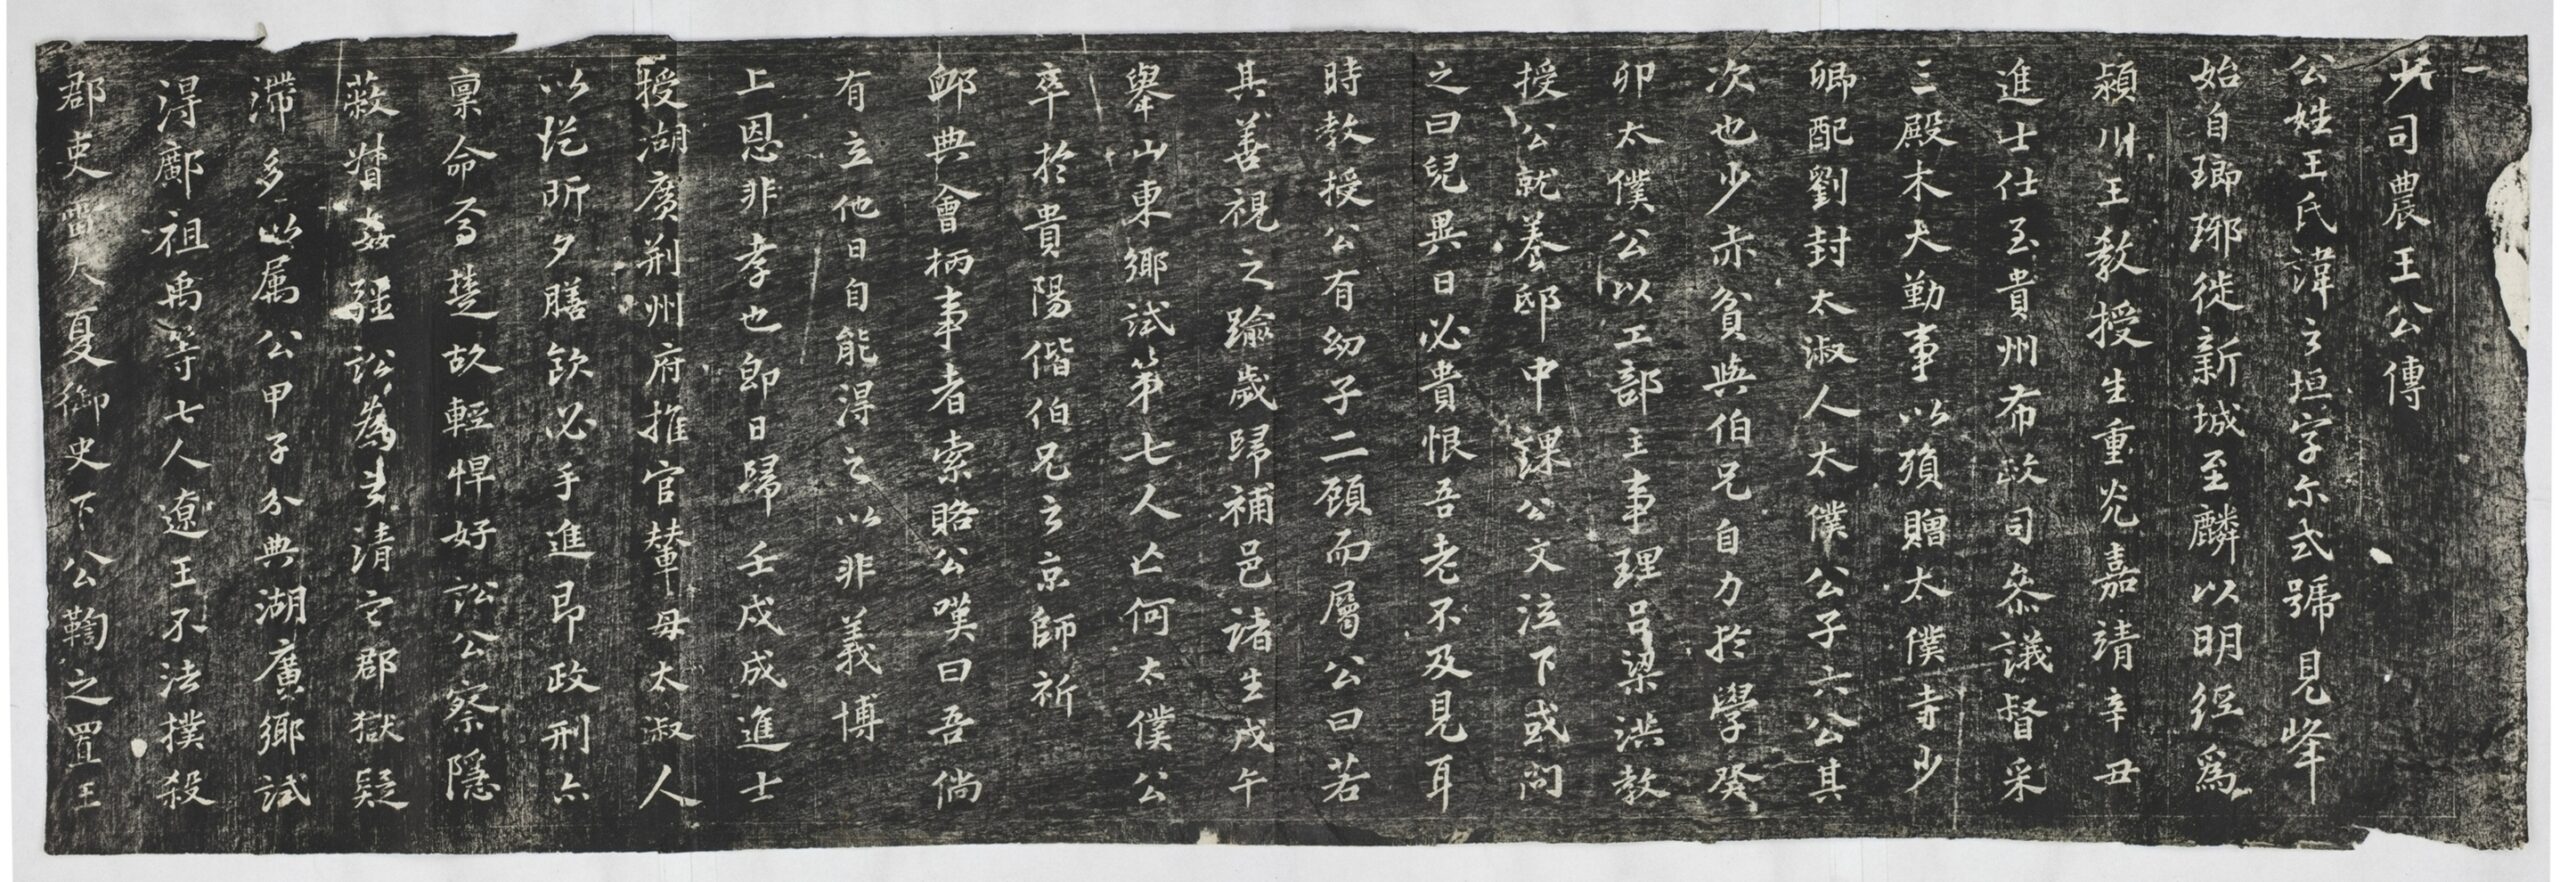 一
少司農王公傳
公姓王氏諱之垣字尔式號見峰
始自琅琊徙新城至麟以明經爲
潁川王教授生重光嘉靖辛丑
進士仕至貴州布政司叅議督采
三殿木大勤事以殞贈太僕寺少
卿配劉封太淑人太僕公子六公其
次也少赤貧與伯兄自力於學癸
卯太僕公以工部主事理吕梁洪教
授公就養邸中課公文泣下或問
之曰兒異日必貴恨吾老不及見耳
時教授公有幼子二顧而屬公曰若
其善視之踰歲歸補邑諸生戊午
舉山東鄉試第七人亡何太僕公
卒於貴陽偕伯兄之京師祈
卹典會柄事者索賂公嘆曰吾倘
有立他日自能得之以非義博
上恩非孝也即日歸壬戌成進士
授湖廣荆州府推官輦母太淑人
以從所夕膳飲必手進即政刑亦
稟命焉楚故輕悍好訟公察隱
蔽㫺姦彊訟爲清它郡獄疑
滯多以属公甲子分典湖廣鄉試
得鄺祖禹等七人遼王不法撲殺
郡吏  人夏御史下公鞫之置王